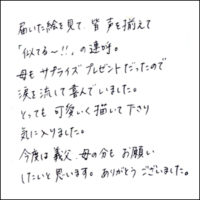 届いた絵を見て 皆 声を揃えて
「似てる〜!!」の連呼。
母も サプライズプレゼントだったので
涙を流して喜んでいました。
とっても 可愛いく描いて下さり
気に入りました。
今度は義父、母の分も お願い
したいと思います。ありがとう ございました。